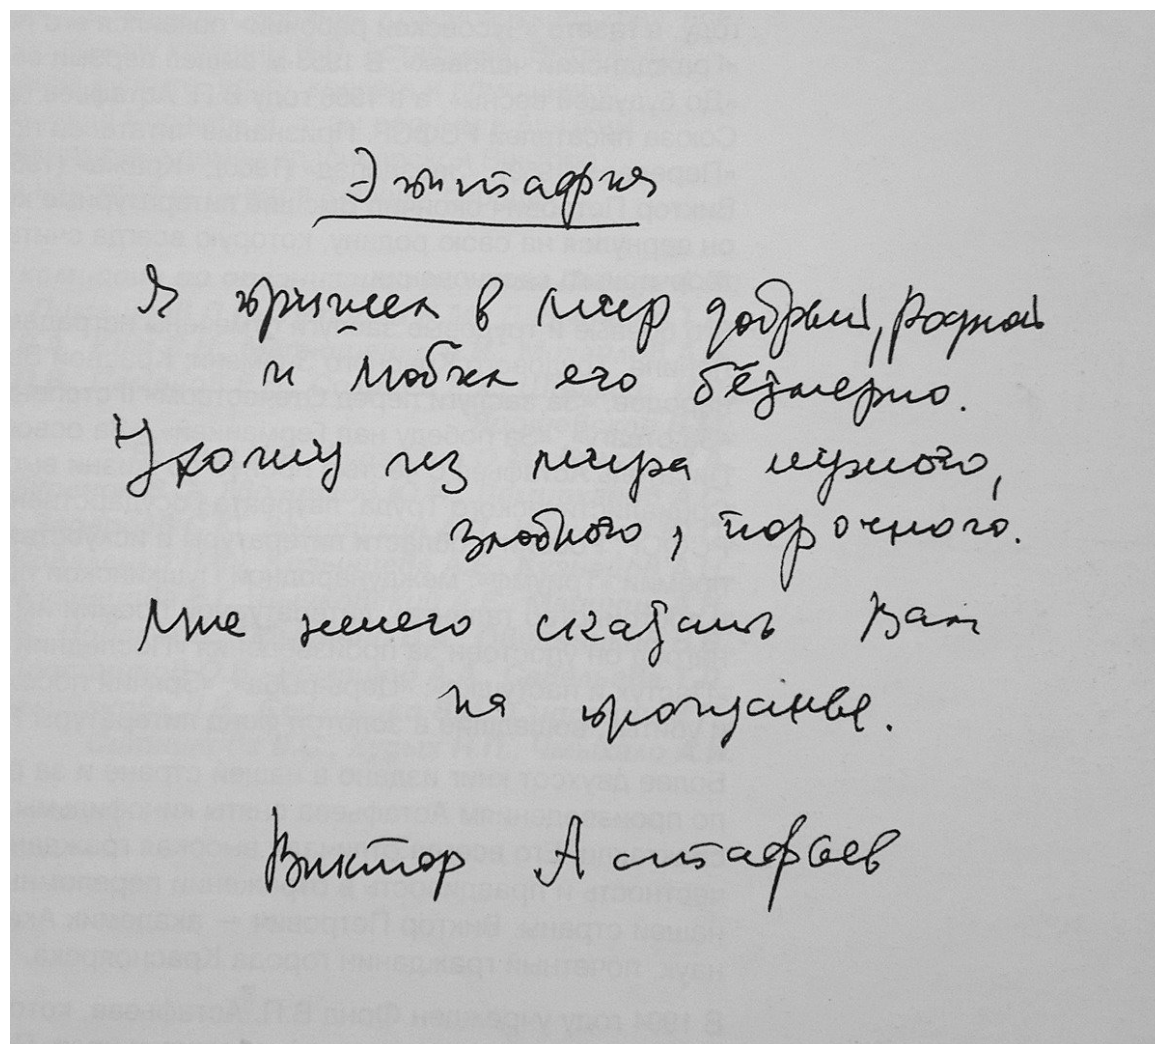 Эпитафия
Я пришел в мир добрый, родной
и любил его безмерно.
Ухожу из мира чужого,
злобного, порочного.
Мне нечего сказать Вам
на прощанье.
Виктор Астафьев